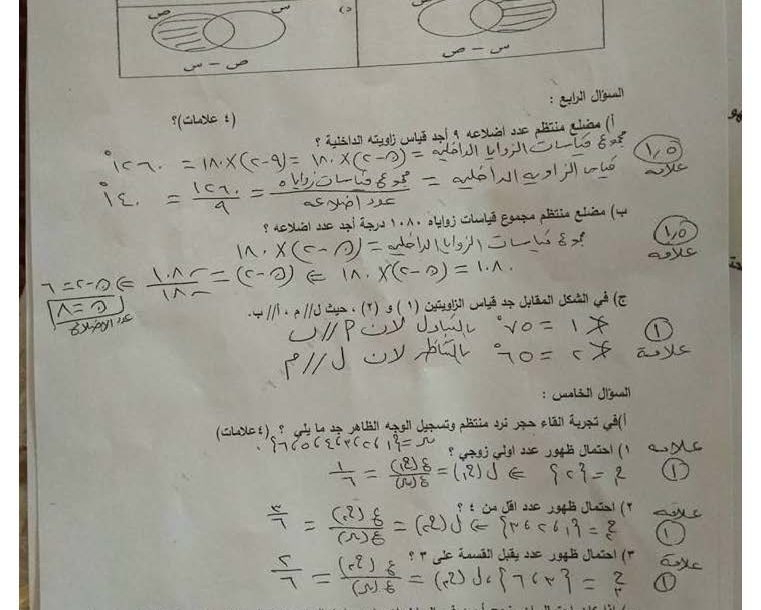 س ص د)
ص - س س - ص
السؤال الرابع :
أ) مضلع منتظم عدد اضلاعه ٩ أجد قياس زاويته الداخلية ؟ (٤ علامات)؟
مجموع قياسات الزوايا الداخلية = (ن-٢)×١٨٠ = (٩-٢)×١٨٠ = ١٢٦٠° ١,٥ علامة
قياس الزاوية الداخلية = مجموع قياسات زواياه / عدد اضلاعه = ١٢٦٠ / ٩ = ١٤٠°
ب) مضلع منتظم مجموع قياسات زواياه ١٠٨٠ درجة أجد عدد اضلاعه ؟ ١,٥ علامة
مجموع قياسات الزوايا الداخلية = (ن-٢)×١٨٠
١٠٨٠ = (ن-٢)×١٨٠ ⇐ (ن-٢) = ١٠٨٠ / ١٨٠ ⇐ ن-٢ = ٦
ن = ٨
عدد الاضلاع
ج) في الشكل المقابل جد قياس الزاويتين (١) و (٢) ، حيث ل// م ، أ// ب.
∢ ١ = ٧٥° بالتبادل لان م // ب ١ علامة
∢ ٢ = ٦٥° بالتناظر لان ل // م
السؤال الخامس :
أ)في تجربة القاء حجر نرد منتظم وتسجيل الوجه الظاهر جد ما يلي ؟ (٤ علامات)
= {١،٢،٣،٤،٥،٦}
١) احتمال ظهور عدد اولي زوجي ؟ علامة ١
ح١ = {٢} ⇐ ل(ح١) = ع(ح١) / ع(س) = ١ / ٦
٢) احتمال ظهور عدد اقل من ٤ ؟ علامة ١
ح٢ = {١،٢،٣} ⇐ ل(ح٢) = ع(ح٢) / ع(س) = ٣ / ٦
٣) احتمال ظهور عدد يقبل القسمة على ٣ ؟ علامة ١
ح٣ = {٣،٦} ، ل(ح٣) = ع(ح٣) / ع(س) = ٢ / ٦